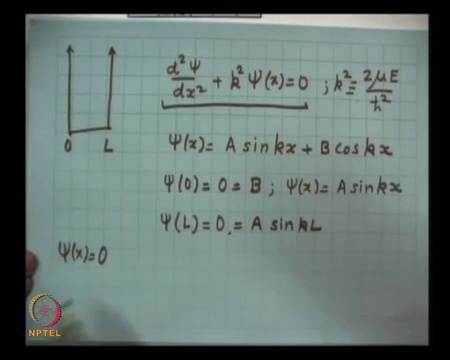 d²ψ/dx² + k² ψ(x) = 0 ; k² ≡ 2μE/ħ²
0 L
ψ(x) = A sin kx + B cos kx
ψ(0) = 0 = B ; ψ(x) = A sin kx
ψ(L) = 0 = A sin kL
ψ(x) = 0
NPTEL